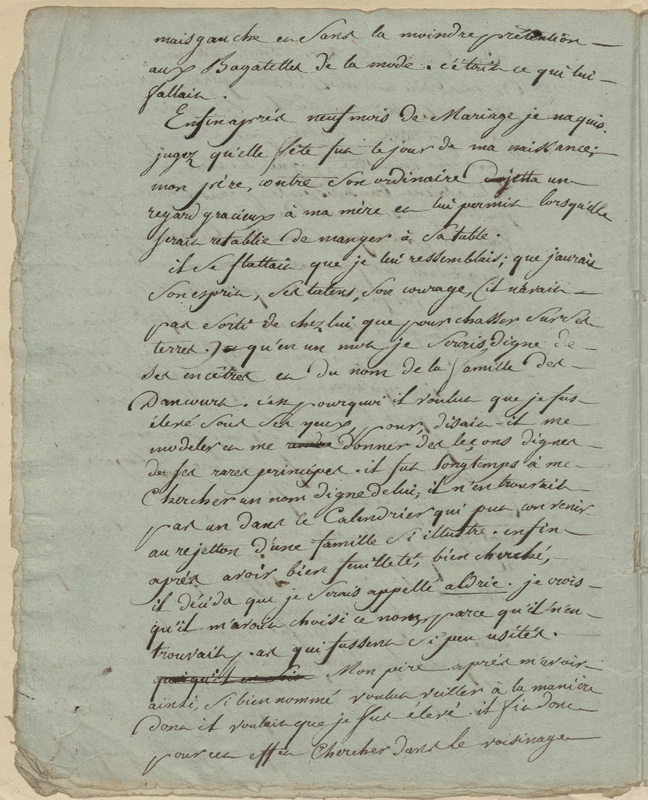 mais gauche et sans la moindre prétention
aux Bagatelles de la mode. c'étoit ce qui lui
fallait.
Enfin après neuf mois de Mariage je naquis.
jugez qu'elle fête fut le jour de ma naissance;
mon père, contre son ordinaire jetta un
regard gracieux à ma mère et lui permit lorsqu'elle
serait retablie de manger à sa table.
il se flattait que je lui ressemblais; que j'aurais
son esprit, ses talens, son courage, (il n'avait
pas sorti de chez lui que pour chasser sur ses
terres.) qu'en un mot je serois digne de
ses encêtres et du nom de la famille des
Dancourt. c'est pourquoi il voulut que je fus
élevé sous ses yeux, pour, disait-il me
modeler et me donner des leçons dignes
de ses rares principes. il fut longtemps à me
chercher un nom digne de lui; il n'en trouvait
pas un dans le Calendrier qui put convenir
au rejetton d'une famille si illustre. enfin
après avoir bien feuilleté, bien cherché,
il décida que je serois appellé aldric. je crois
qu'il m'avait choisi ce nom, parce qu'il n'en
trouvait pas qui fussent si peu usités.
Mon père après m'avoir
ainsi, si bien nommé voulut veiller à la manière
dont il voulait que je fus élevé. il fit donc
pour cet effet chercher dans le voisinage